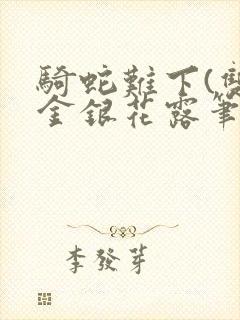 騎蛇難下(雙
金銀花露筆
李發芽